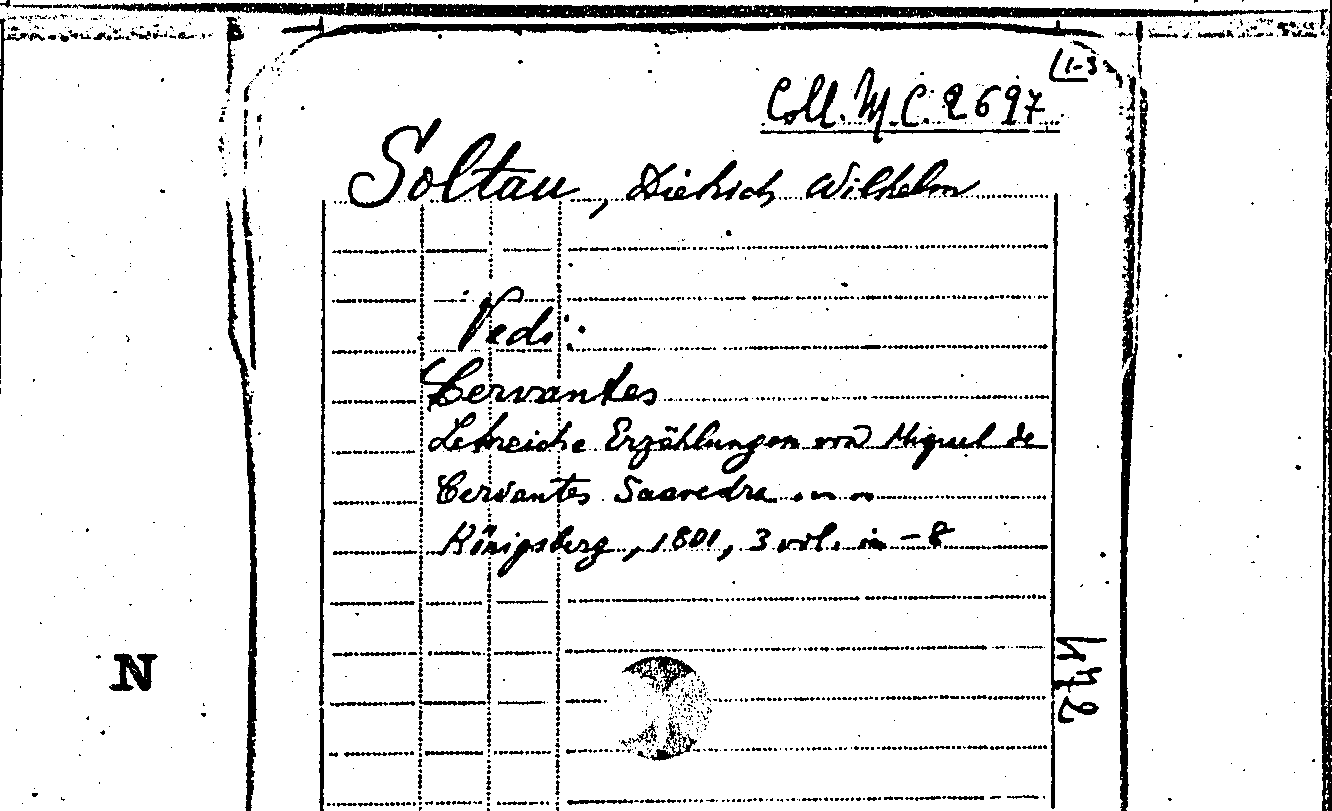 (1-3
Coll. M.C. 2697
Soltau, Dietrich Wilhelm
Vedi:
Cervantes
Lehreiche Erzählungen von Miguel de
Cervantes Saavedra ...
Königsberg, 1801, 3 vol. in-8
N